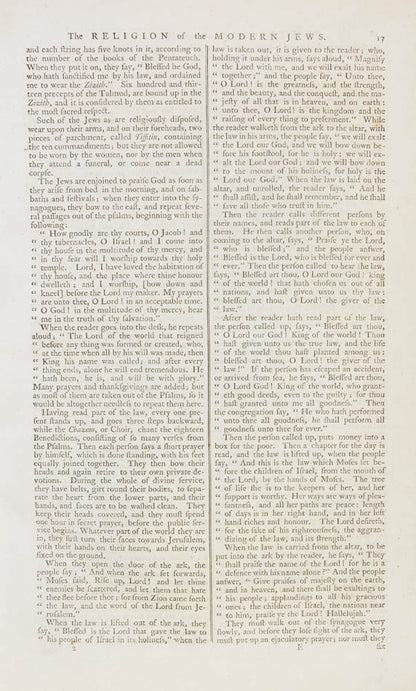 The RELIGION of the MODERN JEWS. 17
and each ſtring has five knots in it, according to
the number of the books of the Pentateuch.
When they put it on, they ſay, “ Bleſſed be God,
who hath ſanctified me by his law, and ordained
me to wear the Zizith.” Six hundred and thir-
teen precepts of the Talmud, are bound up in the
Zizith, and it is conſidered by them as entitled to
the moſt ſacred reſpect.
Such of the Jews as are religiouſly diſpoſed,
wear upon their arms, and on their foreheads, two
pieces of parchment, called Tifſin, containing
the ten commandments; but they are not allowed
to be worn by the women, nor by the men when
they attend a funeral, or come near a dead
corpſe.
The Jews are enjoined to praiſe God as ſoon as
they ariſe from bed in the morning, and on ſab-
baths and feſtivals; when they enter into the ſy-
nagogues, they bow to the eaſt, and repeat ſeve-
ral paſſages out of the pſalms, beginning with the
following:
“ How goodly are thy courts, O Jacob! and
“ thy tabernacles, O Iſrael! and I come into
“ thy houſe in the multitude of thy mercy, and
“ in thy fear will I worſhip towards thy holy
“ temple. Lord, I have loved the habitation of
“ thy houſe, and the place where thine honour
“ dwelleth; and I worſhip, [bow down and
“ kneel] before the Lord my maker. My prayers
“ are unto thee, O Lord! in an acceptable time.
“ O God! in the multitude of thy mercy, hear
“ me in the truth of thy ſalvation.”
When the reader goes into the deſk, he repeats
aloud; “ The Lord of the world that reigned
“ before any thing was formed or created, who,
“ at the time when all by his will was made, then
“ King his name was called; and after every
“ thing ends, alone he will end tremendous. He
“ hath been, he is, and will be with glory.”
Many prayers and thankſgivings are added; but
as moſt of them are taken out of the Pſalms, ſo it
would be altogether needleſs to repeat them here.
Having read part of the law, every one pre-
ſent ſtands up, and goes three ſteps backward,
while the Chazan, or Choir, chant the eighteen
Benedictions, conſiſting of ſo many verſes from
the Pſalms. Then each perſon ſays a ſhort prayer
by himſelf, which is done ſtanding, with his feet
equally joined together. They then bow their
heads and again recite to their own private de-
votions. During the whole of divine ſervice,
they have belts, girt round their bodies, to ſepa-
rate the heart from the lower parts, and their
hands, and faces are to be waſhed clean. They
keep their heads covered, and they muſt ſpend
one hour in ſecret prayer, before the public ſer-
vice begins. Whatever part of the world they are
in, they firſt turn their faces towards Jeruſalem,
with their hands on their hearts, and their eyes
fixed on the ground.
When they open the door of the ark, the
people ſay; “ And when the ark ſet forwards,
“ Moſes ſaid, Riſe up, Lord! and let thine
“ enemies be ſcattered, and let them that hate
“ thee flee before thee; for from Zion came forth
“ the law, and the word of the Lord from Je-
“ ruſalem.”
When the law is lifted out of the ark, they
ſay, “ Bleſſed is the Lord that gave the law to
“ his people of Iſrael in its holineſs,” when the
2
law is taken out, it is given to the reader; who,
holding it under his arms, ſays aloud, “ Magnify
“ the Lord with me, and we will exalt his name
“ together;” and the people ſay, “ Unto thee,
“ O Lord! is the greatneſs, and the ſtrength,
“ and the beauty, and the conqueſt, and the ma-
“ jeſty of all that is in heaven, and on earth:
“ unto thee, O Lord! is the kingdom and the
“ raiſing of every thing to preferment.” While
the reader walketh from the ark to the altar, with
the law in his arms, the people ſay, “ we will exalt
“ the Lord our God, and we will bow down be-
“ fore his footſtool, for he is holy: we will ex-
“ alt the Lord our God; and we will bow down
“ to the mount of his holineſs, for holy is the
“ Lord our God.” When the law is laid on the
altar, and unrolled, the reader ſays, “ And he
“ ſhall aſſiſt, and he ſhall remember, and he ſhall
“ ſave all thoſe who truſt in him.”
Then the reader calls different perſons by
their names, and reads part of the law to each of
them. He then calls another perſon, who, on
coming to the altar, ſays, “ Praiſe ye the Lord,
“ who is bleſſed;” and the people anſwer,
“ Bleſſed is the Lord, who is bleſſed for ever and
“ ever.” Then the perſon called to hear the law,
ſays, “ Bleſſed art thou, O Lord our God! king
“ of the world! that hath choſen us out of all
“ nations, and haſt given unto us thy law:
“ bleſſed art thou, O Lord! the giver of the
“ law.”
After the reader hath read part of the law,
the perſon called up, ſays, “ Bleſſed art thou,
“ O Lord our God! King of the world! Thou
“ haſt given unto us the true law, and the life
“ of the world thou haſt planted among us:
“ bleſſed art thou, O Lord! the giver of the
“ law!” If the perſon has eſcaped an accident,
or arrived from ſea, he ſays, “ Bleſſed art thou,
“ O Lord God! King of the world, who grant-
“ eth good deeds, even to the guilty; for thou
“ haſt granted unto me all goodneſs.” Then
the congregation ſay, “ He who hath performed
“ unto thee all goodneſs, he ſhall perform all
“ goodneſs unto thee for ever.”
Then the perſon called up, puts money into a
box for the poor. Then a chapter for the day is
read, and the law is lifted up, when the people
ſay, “ And this is the law which Moſes ſet be-
“ fore the children of Iſrael, from the mouth of
“ the Lord, by the hands of Moſes. The tree
“ of life ſhe is to the keepers of her, and her
“ ſupport is worthy. Her ways are ways of plea-
“ ſantneſs, and all her paths are peace: length
“ of days is in her right hand, and in her left
“ hand riches and honour. The Lord deſireth,
“ for the ſake of his righteouſneſs, the aggran-
“ dizing of the law, and its ſtrength.”
When the law is carried from the altar, to be
put into the ark by the reader, he ſays, “ They
“ ſhall praiſe the name of the Lord! for he is a
“ defence with his name alone?” And the people
anſwer, “ Give praiſes of majeſty on the earth,
“ and in heaven, and there ſhall be exaltings to
“ his people; applaudings to all his gracious
“ ones; the children of Iſrael, the nations near
“ to him, praiſe ye the Lord! Hallelujah.”
They muſt walk out of the ſynagogue very
ſlowly, and before they loſe ſight of the ark, they
muſt put up an ejaculatory prayer; nor muſt they
E ſix